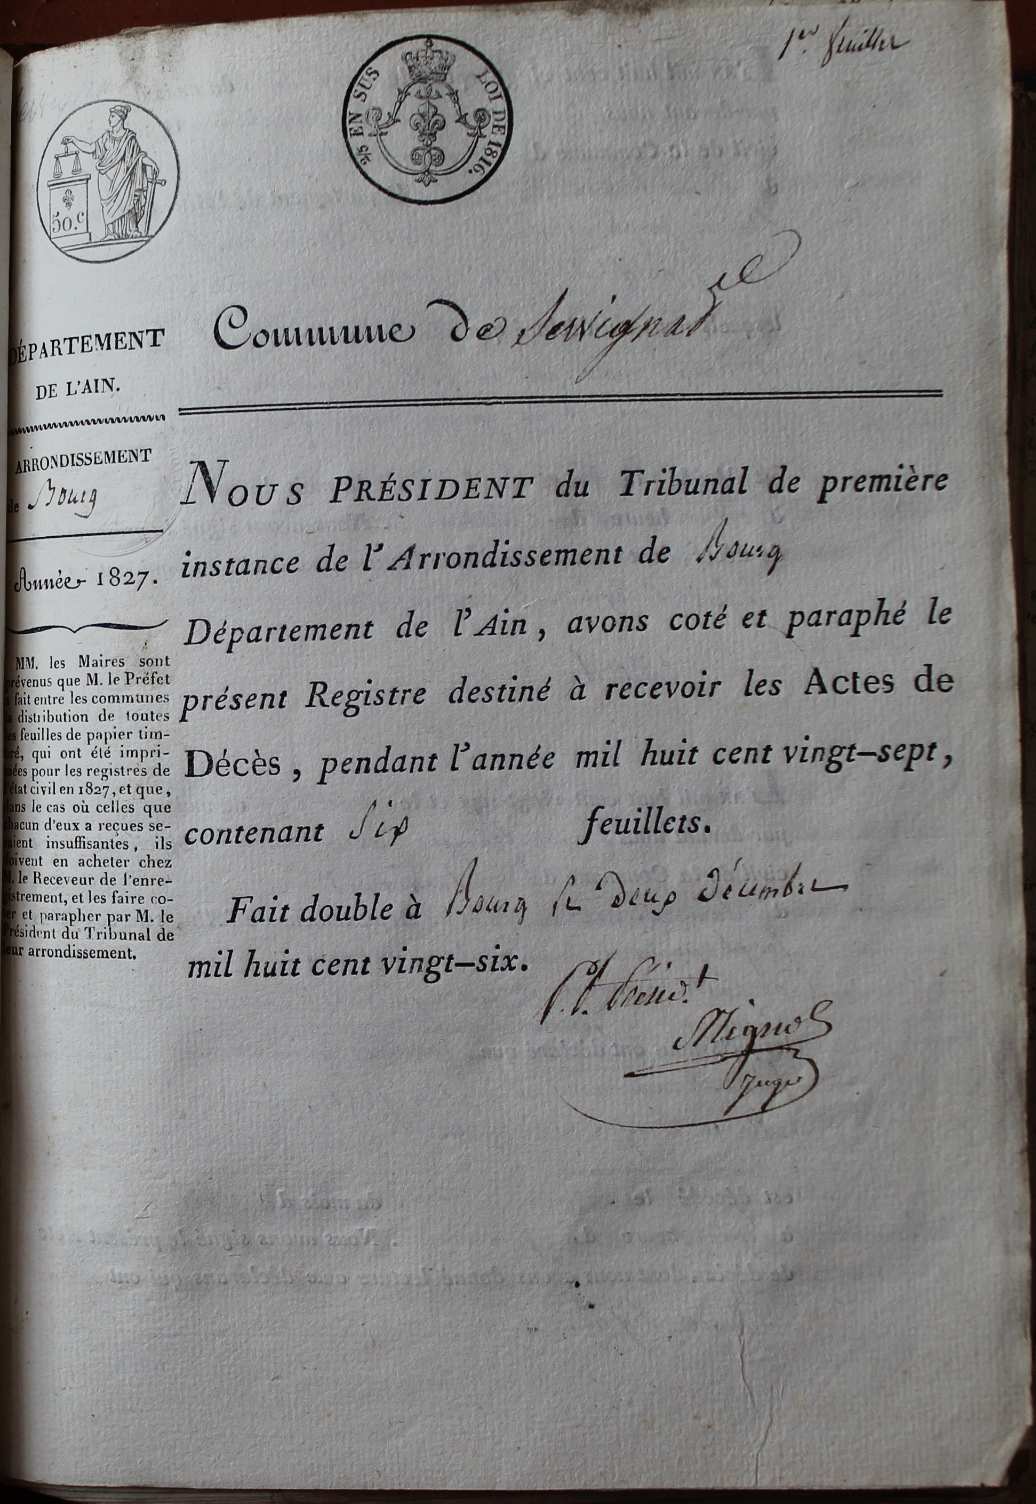 1er feuillet
2/5 EN SUS
LOI DE 1816.
50.c
Commune de Servignat
DÉPARTEMENT
DE L'AIN.
ARRONDISSEMENT
de Bourg
Année 1827.
MM. les Maires sont
prévenus que M. le Préfet
a fait entre les communes
la distribution de toutes
les feuilles de papier tim-
bré, qui ont été impri-
mées pour les registres de
l'état civil en 1827, et que,
dans le cas où celles que
chacun d'eux a reçues se-
raient insuffisantes, ils
doivent en acheter chez
M. le Receveur de l'enre-
gistrement, et les faire co-
ter et parapher par M. le
Président du Tribunal de
leur arrondissement.
NOUS PRÉSIDENT du Tribunal de première
instance de l'Arrondissement de Bourg
Département de l'Ain, avons coté et paraphé le
présent Registre destiné à recevoir les Actes de
Décès, pendant l'année mil huit cent vingt-sept,
contenant Six feuillets.
Fait double à Bourg le Deux Décembre
mil huit cent vingt-six.
Juge